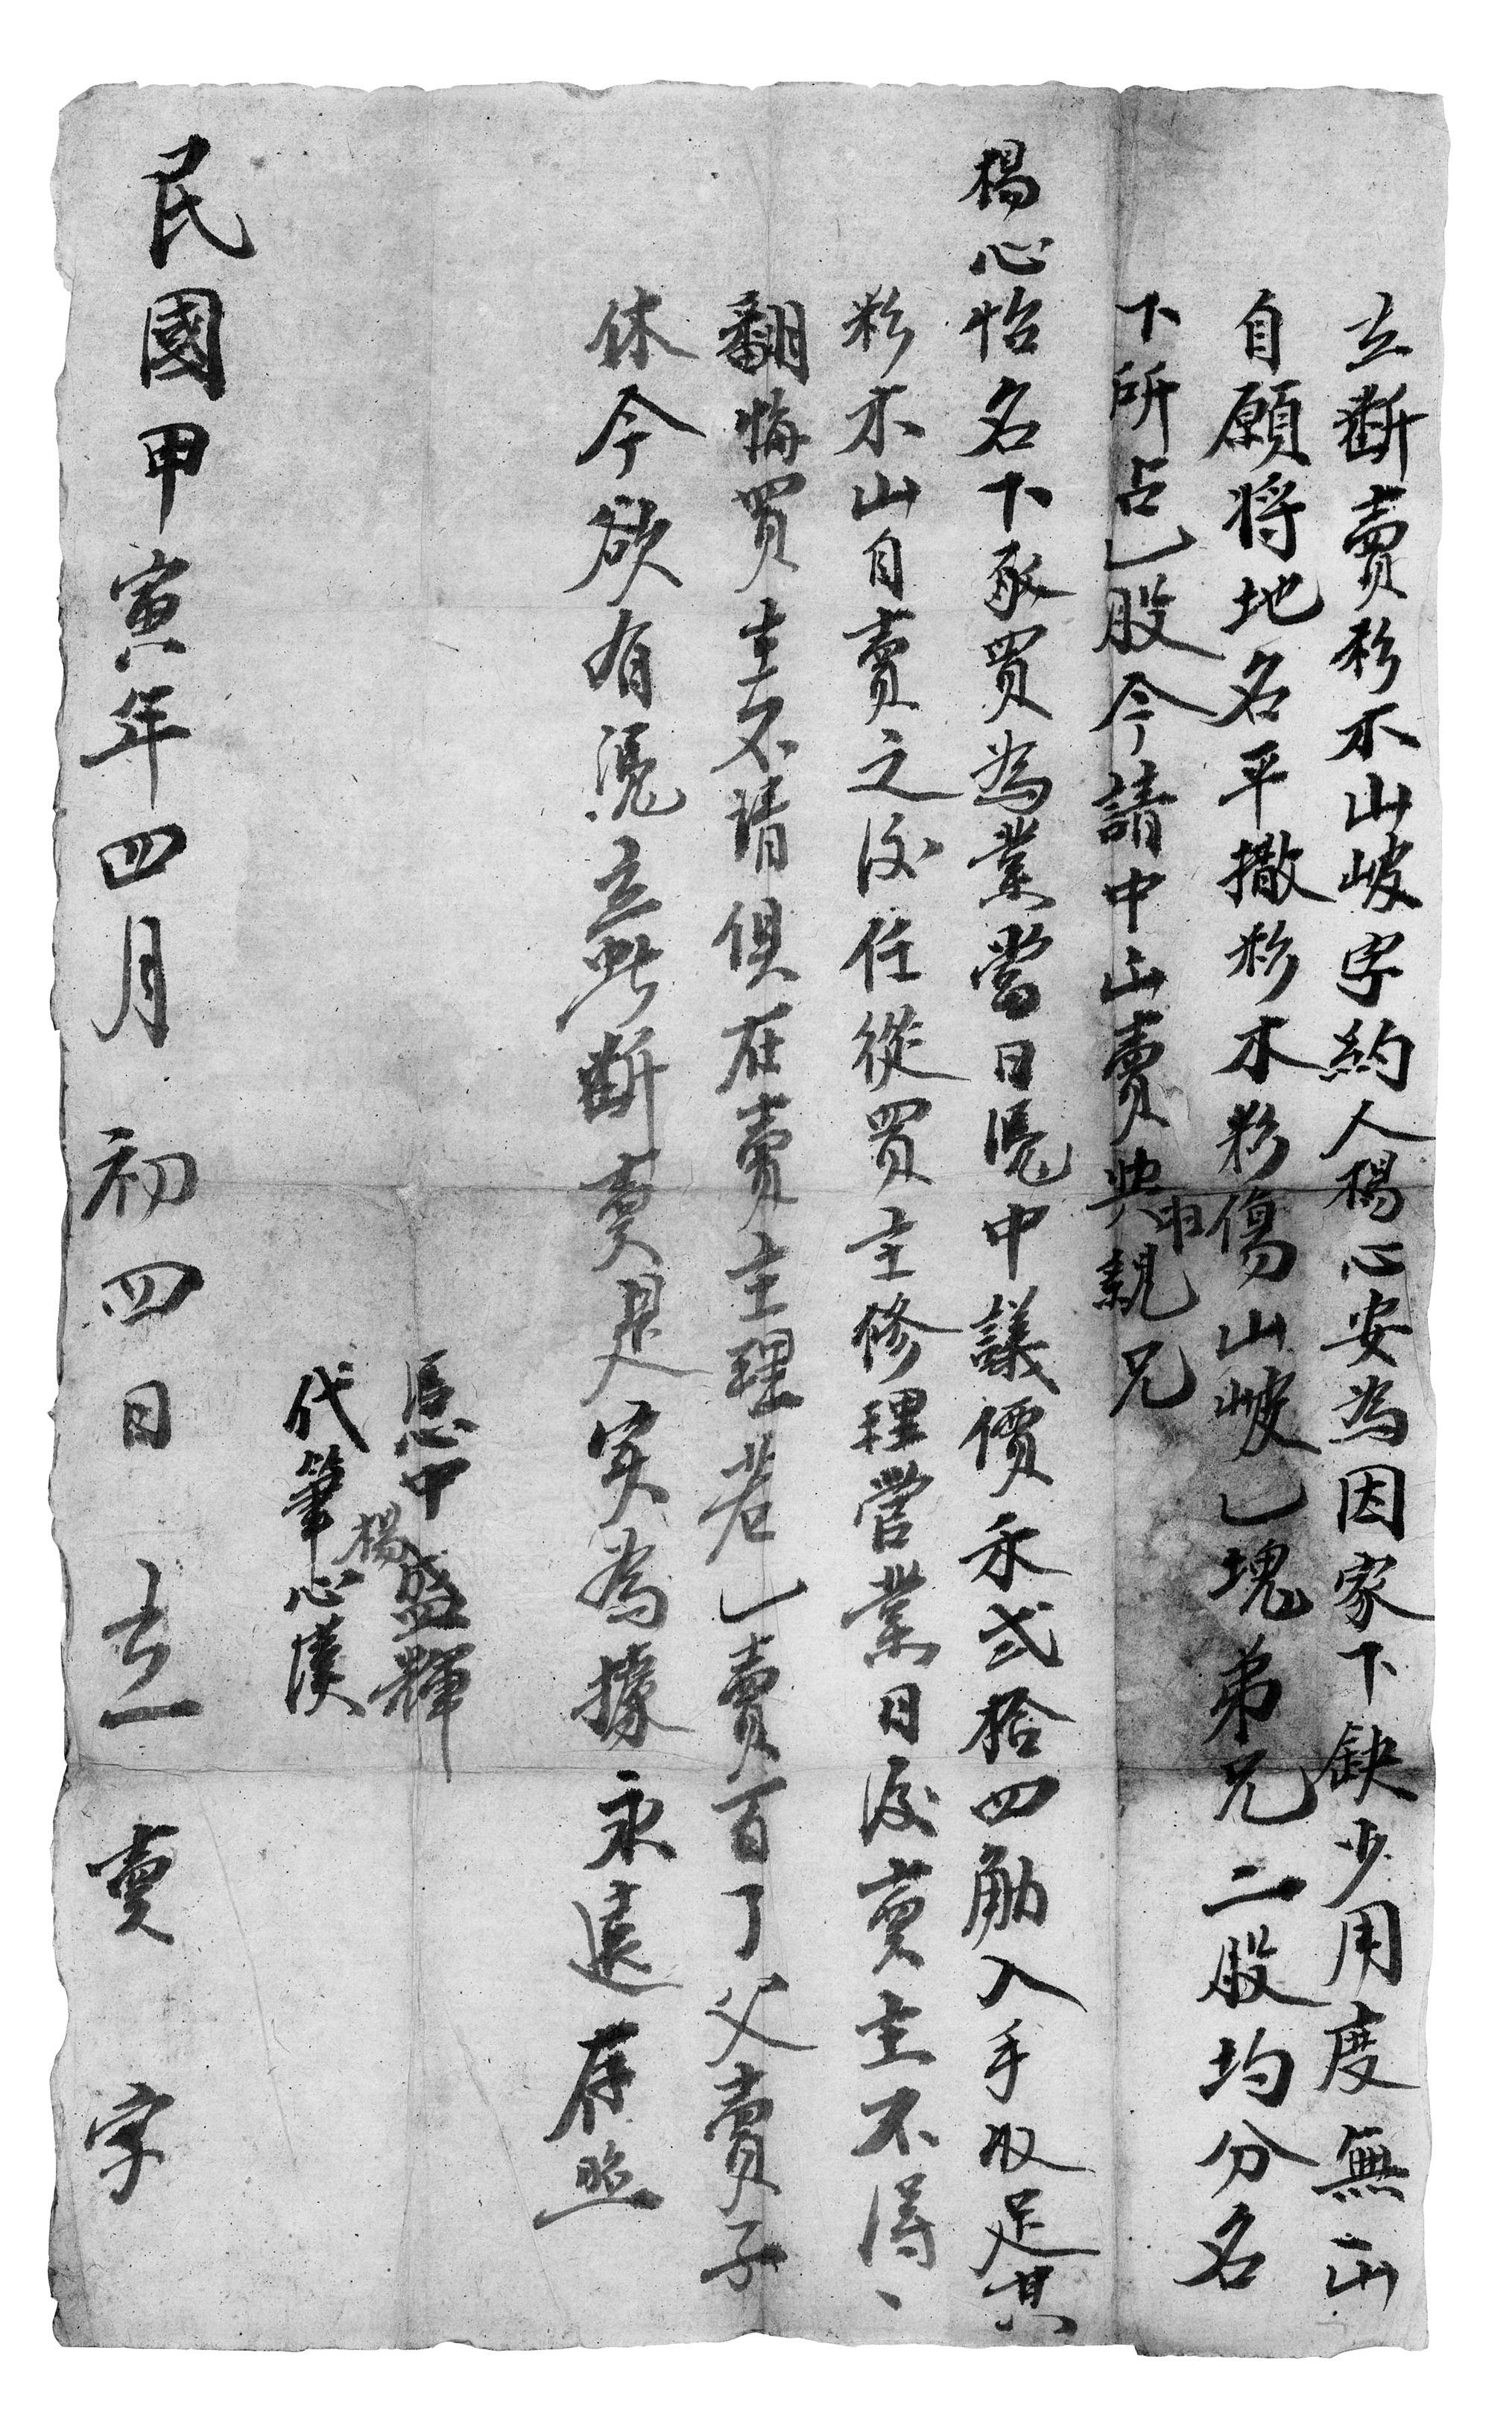 立斷賣杉木山岥字約人楊心安為因家下缺少用度無出
自願將地名平撒杉木杉傷山岥乙塊弟兄二股均分名
下所占乙股今請中出賣與胞親兄
楊心怡名下承買為業當日凴中議價禾弍拾四觔入手收足其
杉木山自賣之後任從買主修理營業日後賣主不得、
翻悔買主不請俱在賣主理若乙賣百了父賣子
休今欲有凴立此斷賣是实為據永遠存照
憑中楊盛輝
代筆心漢
民國甲寅年四月初四日立賣字